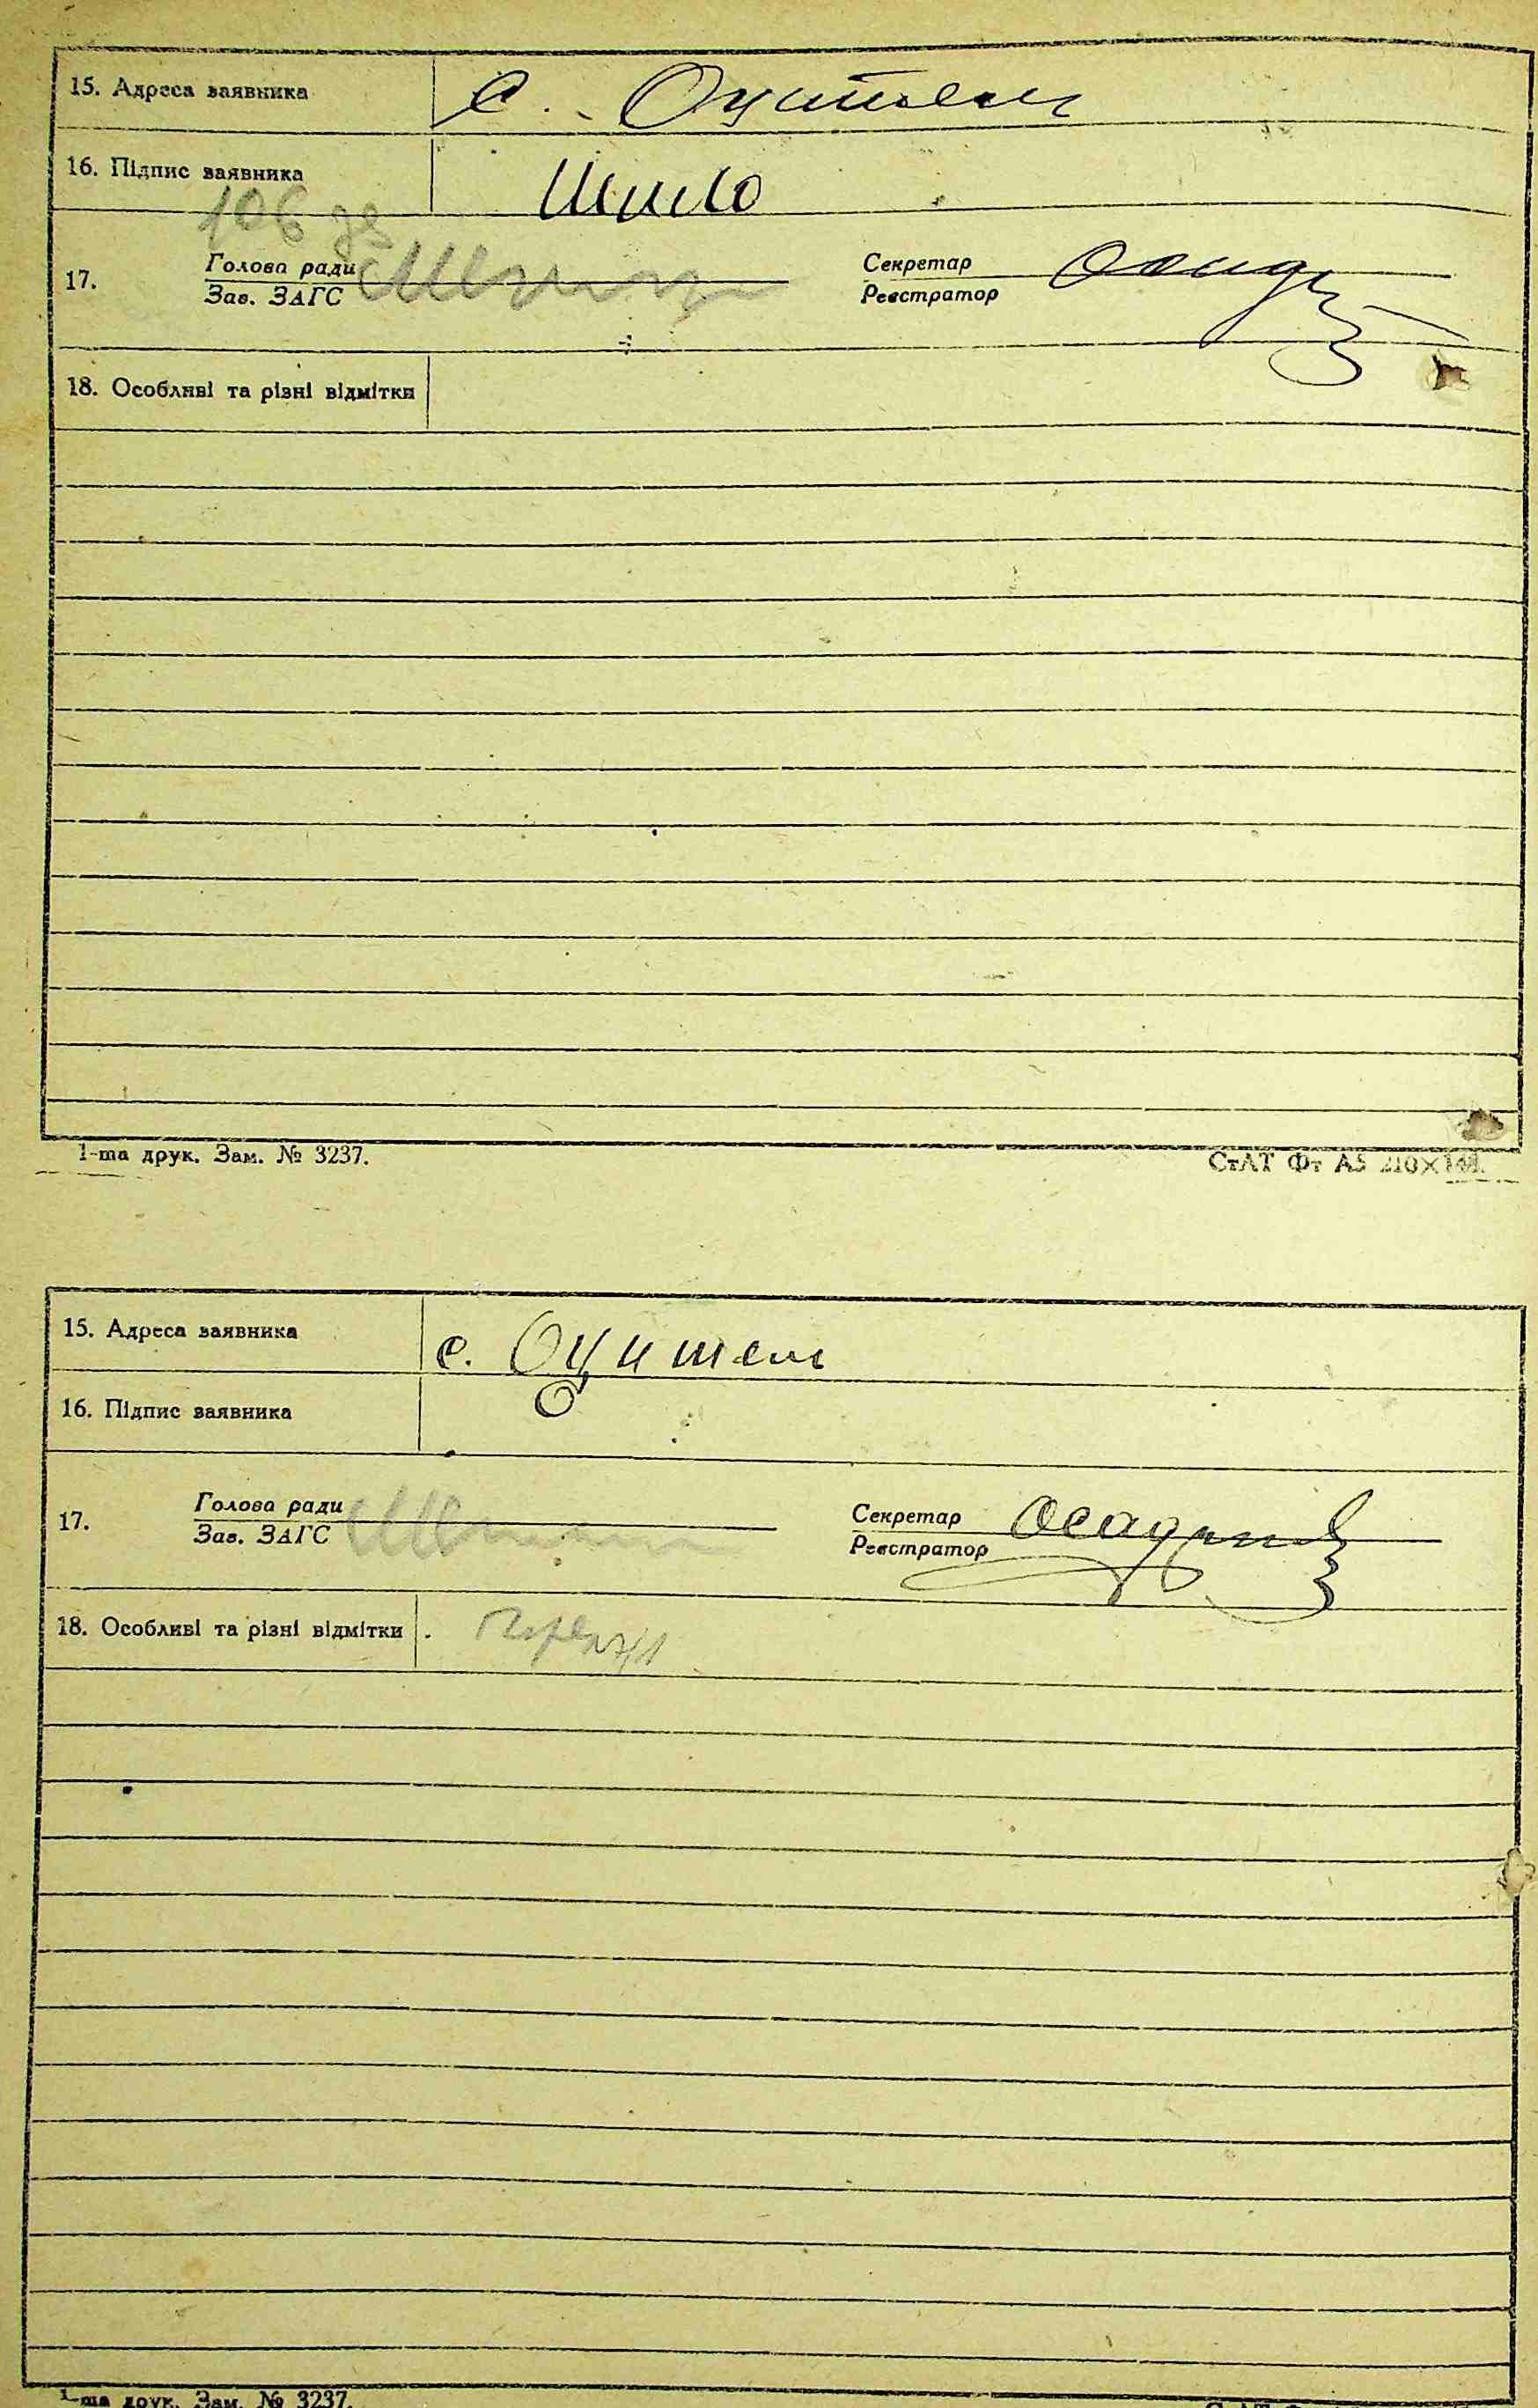 15. Адреса заявника с. Оцитель
16. Підпис заявника Шило
106
17. Голова ради Секретар
Зав. ЗАГС Реєстратор
18. Особливі та різні відмітки
1-ша друк. Зам. № 3237. СтАТ Фт А5 210×148.
15. Адреса заявника с. Оцитель
16. Підпис заявника
17. Голова ради Секретар
Зав. ЗАГС Реєстратор
18. Особливі та різні відмітки
1-ша друк. Зам. № 3237.